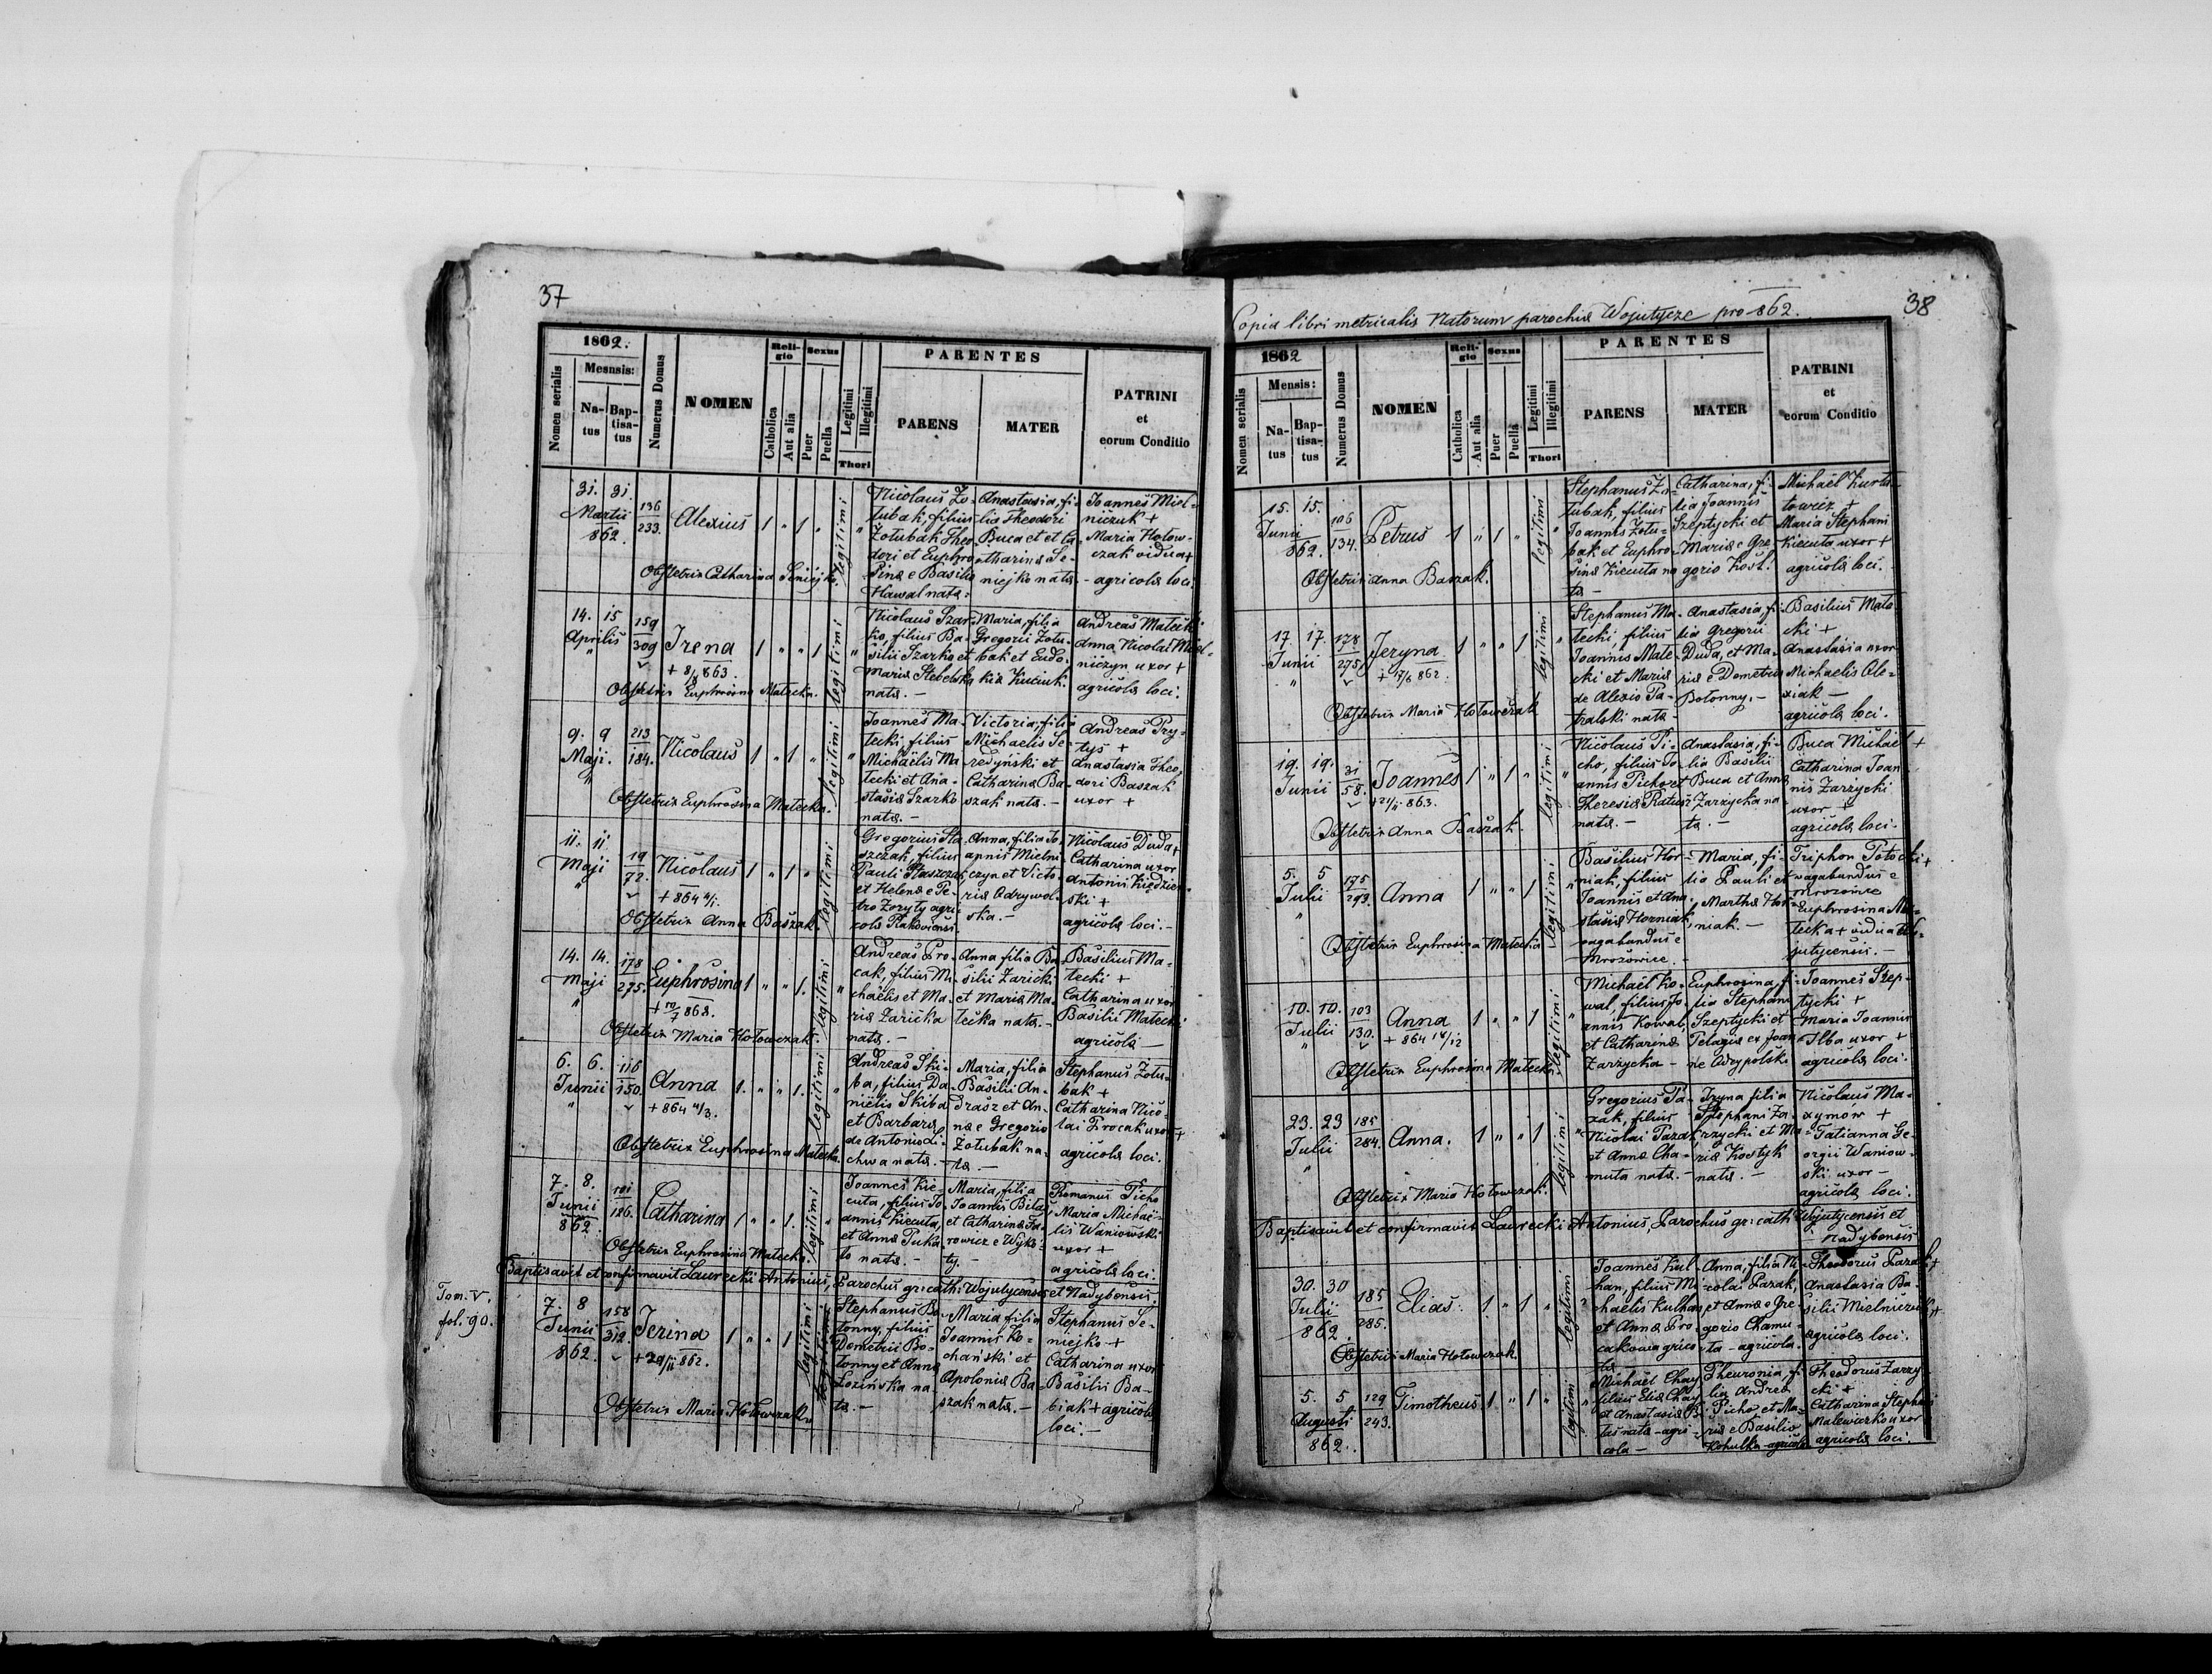 37
1862.
Nomen serialis
Mesnsis:
Na-
tus
Bap-
tisa-
tus
Numerus Domus
NOMEN
Reli-
gio
Catholica
Aut alia
Sexus
Puer
Puella
Legitimi
Illegitimi
Thori
PARENTES
PARENS
MATER
PATRINI
et
eorum Conditio
31. 31.
Martii
862.
136
233.
Alexius 1 " 1 "
legitimi
Nicolaus Zo-
łubak, filius
Żołubak Theo-
dori et Euphro-
sina e Basilio
Hawal nata:
Anastasia, fi-
lia Theodori
Buca et et Ca-
tharina Se-
niejko nata.
Joannes Miel-
niczuk +
Maria Hołow-
czak vidua +
- agricola loci
Obstetrix Catharina Seniejko
14. 15
Aprilis
"
159
309
Irena 1 " " 1
+ 8/8 863.
legitimi
Nicolaus Szar-
ko, filius Ba-
silii Szarko et
Maria Stebelska
nata. -
Maria, filia
Gregorii Zołu-
bak et Eudo-
kia Kuciuk.
Andreas Małecki
Anna Nicolai Miel-
niczyn uxor +
agricola loci.
Obstetrix Euphrosina Małecka.
9. 9
Maji.
"
213
184.
Nicolaus 1 " 1 "
legitimi
Joannes Ma-
łecki, filius
Michaëlis Ma
łecki et Ana-
stasia Szarko
nata. -
Victoria, filia
Michaelis Se-
redyński et
Catharina Ba-
szak nata. -
Andreas Pry-
tys +
Anastasia Theo-
dori Baszak
uxor +
Obstetrix Euphrosina Małecka.
11. 11.
Maji
"
19
72.
Nicolaus 1 " 1 "
+ 864 4/1.
legitimi
Gregorius Sta
szczak, filius
Pauli Staszczak
et Helena e Pe-
tro Zoryty agri-
cola
Anna, filia Jo-
annis Mielni-
czyn et Victo-
ria Odrywol-
ska. -
Nicolaus Duda +
Catharina uxor
Antonii Kiedzier-
ski +
agricola loci. -
Obstetrix Anna Baszak.
14. 14.
Maji
"
178
275.
Euphrosina 1 " " 1.
+ 10/7 868.
legitimi
Andreas Pro-
cak, filius Mi-
chaëlis et Ma-
ria Zaricka
nata. -
Anna filia Ba-
silii Zaricki
et Maria Ma-
łecka nata. -
Basilius Ma-
łecki +
Catharina uxor
Basilii Małecki
agricola -
Obstetrix Maria Hołowczak.
6. 6.
Junii
"
116
150.
Anna 1. " " 1.
+ 864 11/3.
legitimi
Andreas Ski-
ba, filius Da-
nielis Skiba
et Barbara
de Antonio Li-
chwa nata. -
Maria, filia
Basilii An-
drasz et An-
na e Gregorio
Zołubak na-
ta. -
Stephanus Zołu-
bak +
Catharina Nico-
lai Procak uxor +
agricola loci.
Obstetrix Euphrosina Małecka.
7. 8.
Junii
862.
101
126.
Catharina 1 " " 1.
legitimi
Joannes Kie-
cuta, filius Jo-
annis Kiecuta,
et Anna Puka-
ło nata. -
Maria, filia
Joannis Bilas
et Catharina Ja-
rowicz e Wyko-
ty. -
Romanus Picho
Maria Michaë-
lis Waniowski
uxor +
agricola loci.
Obstetrix Euphrosina Małecka.
Baptisavit et confirmavit Laurecki Antonius, Parochus gr: cath: Wojutycensis et Nadybensis.
Tom. V.
fol. 90.
7. 8
Junii
862.
158
312.
Jerina 1 " " 1
+ 862.
legitimi
Stephanus Bo-
łonny, filius
Demetrii Bo-
łonny et Anna
Łozińska na-
ta. -
Maria filia
Joannis Ko-
chański et
Apolonia Ba-
szak nata. -
Stephanus Se-
niejko +
Catharina uxor
Basilii Ba-
biak + agricola
loci. -
Obstetrix Maria Hołowczak.
Copia libri metricalis Natorum parochia Wojutycze pro 862.
38
1862
Nomen serialis
Mensis:
Na-
tus
Bap-
tisa-
tus
Numerus Domus
NOMEN
Reli-
gio
Catholica
Aut alia
Sexus
Puer
Puella
Legitimi
Illegitimi
Thori
PARENTES
PARENS
MATER
PATRINI
et
eorum Conditio
15. 15.
Junii
862.
106
134.
Petrus 1 " 1 "
legitimi
Stephanus Zo-
łubak, filius
Joannis Zołu-
bak et Euphro-
sina Kiecuta na
ta -
Catharina, fi-
lia Joannis
Szeptycki et
Maria e Gre-
gorio Kost.
Michaël Kurta
towicz +
Maria Stephani
Kiecuta uxor +
agricola loci.
Obstetrix Anna Baszak.
17 17.
Junii
"
178
275
Jeryna 1 " " 1
+ 17/6 862.
legitimi
Stephanus Ma-
łecki filius
Joannis Małe-
cki et Maria
de Alexio Pa-
tralski nata -
Anastasia, fi-
lia Gregorii
Duda, et Ma-
ria e Demetrio
Bołonny. -
Basilius Mało
cki +
Anastasia uxor
Michaelis Ole-
xiak -
agricola loci.
Obstetrix Maria Hołowczak
19. 19.
Junii
31
58.
Joannes 1 " 1 "
863.
legitimi
Nicolaus Pi-
cho, filius Jo-
annis Picho et
Theresia Ratusz
nata. -
Anastasia, fi-
lia Basilii
Buca et Anna
Zarzycka na
ta. -
Buca Michaël +
Catharina Joan
nis Zarzycki
uxor +
agricola loci.
Obstetrix Anna Baszak.
5. 5
Julii
"
175
293.
Anna 1 " " 1
legitimi
Basilius Hor-
niak, filius
Joannis et Ana-
stasia Horniak,
vagabundus e
Mrozowice. -
Maria, fi-
lia Pauli et
Martha Hor-
niak. -
Triphon Potocki +
vagabundus e
Mrozowice
Euphrosina Ma-
łecka + vidua Wo-
jutycensis. -
Obstetrix Euphrosina Małecka
10. 10.
Julii
"
103
130.
Anna 1 " " 1
+ 864 14/12
legitimi
Michaël Ko-
wal, filius Jo-
annis Kowal,
et Catharina
Zarzycka -
Euphrosina, fi-
lia Stephani
Szeptycki et
Pelagia ex Joan
ne Odrypolski
Joannes Szep-
tycki +
Maria Joannis
Ilba uxor +
agricola loci.
Obstetrix Euphrosina Małecka
23. 23
Julii
"
185
284.
Anna. 1 " " 1
legitimi
Gregorius Pa-
zak, filius
Nicolai Pazak
et Anna Cha-
muta nata -
Iryna filia
Stephani Za-
rzycki et Ma-
ria Kostyk
nata. -
Nicolaus Ma-
xymów +
Tatianna Ge-
orgii Waniow-
ski uxor -
agricola loci.
Obstetrix Maria Hołowczak.
Baptisavit et confirmavit Laurecki Antonius, Parochus gr: cath: Wojutycensis et
Nadybensis
30. 30
Julii
862.
185
285.
Elias. 1 " 1 "
legitimi
Joannes Kul-
han, filius Mi-
chaelis Kulhan
et Anna Pro-
cakowa agrico-
la
Anna, filia Ni-
colai Pazak,
et Anna e Gre-
gorio Chamu-
ta - agricola.
Theodorus Pazak +
Anastasia Ba-
silii Mielniczuk +
agricola loci.
Obstetrix Maria Hołowczak.
5. 5
Augusti
862.
129
243.
Timotheus 1 " 1 "
legitimi
Michaël Chay
filius Elia Chay
et Anastasia
nata - agri-
cola -
Pheuronia, fi-
lia Andrea
Picho et Ma-
ria e Basilio
Kohutka - agricola
Theodorus Zarzy
cki +
Catharina Stephani
Malewiczko uxor
agricola loci.